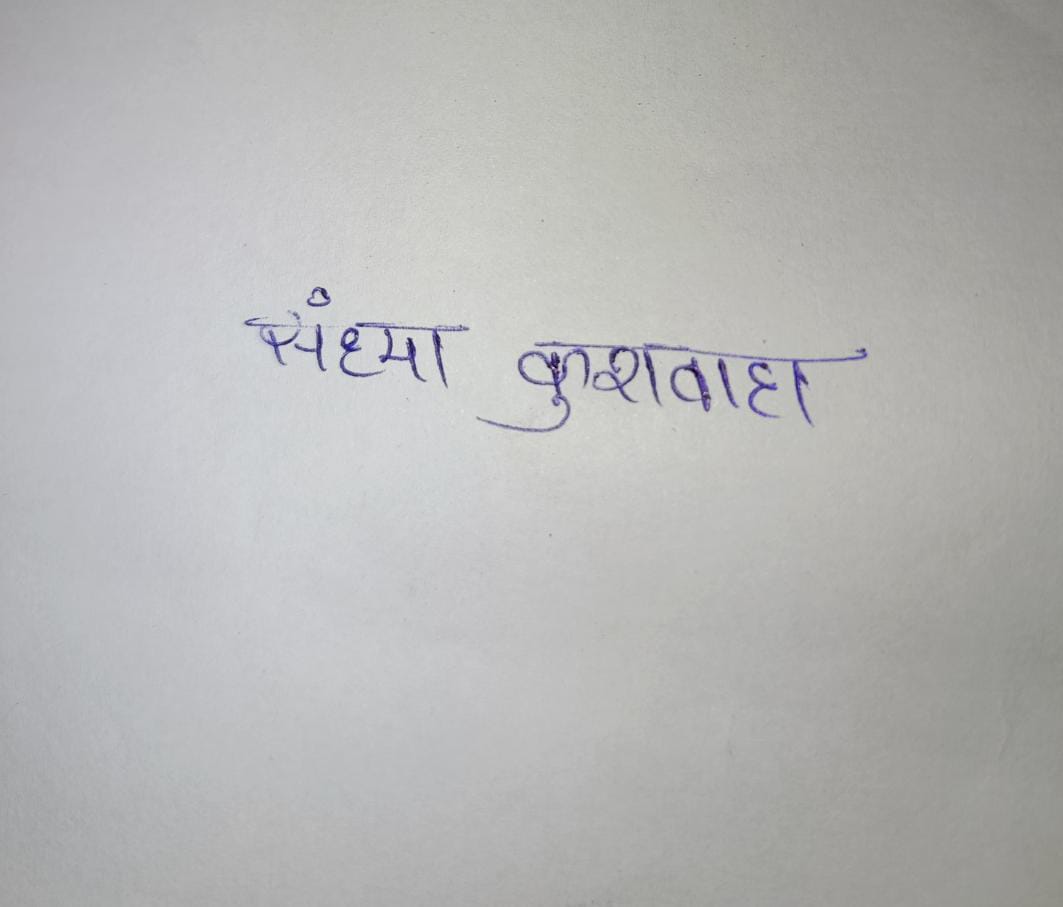 संध्या कुशवाहा